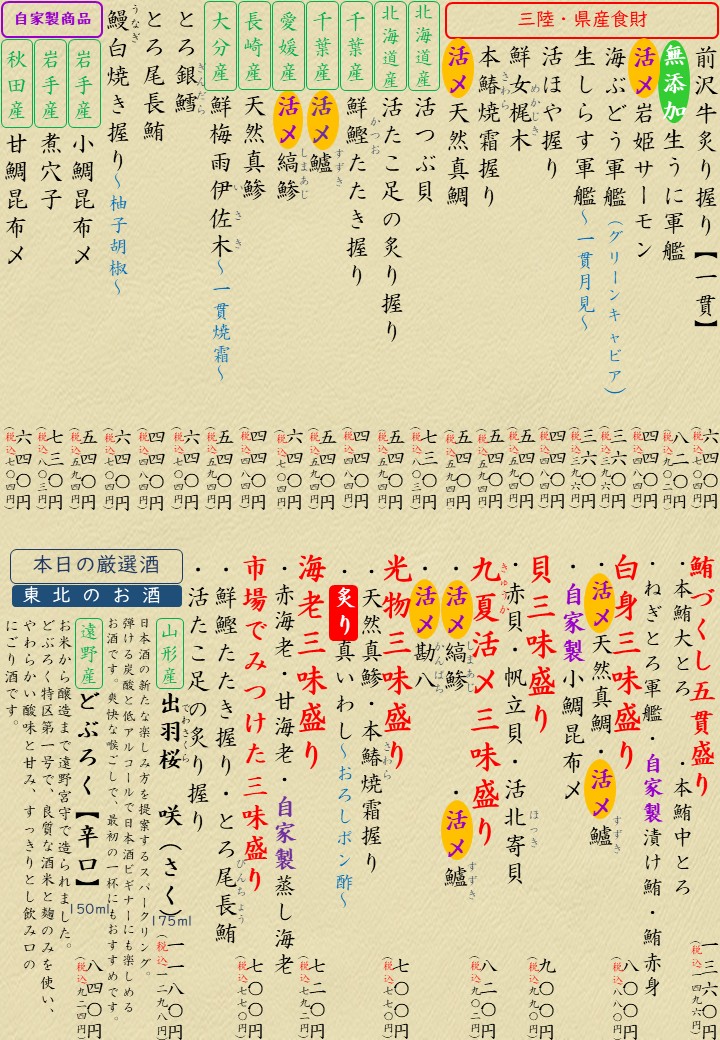 三陸・県産食財
前沢牛炙り握り【一貫】
六四〇円
(税込七〇四円)
無添加 生うに軍艦
八二〇円
(税込九〇二円)
活〆 岩姫サーモン
四四〇円
(税込四八四円)
海ぶどう軍艦(グリーンキャビア)
三六〇円
(税込三九六円)
生しらす軍艦~一貫月見~
三六〇円
(税込三九六円)
活ほや握り
四四〇円
(税込四八四円)
鮮女梶木
めかじき
五四〇円
(税込五九四円)
本鰆焼霜握り
さわら
五四〇円
(税込五九四円)
活〆 天然真鯛
五四〇円
(税込五九四円)
北海道産
活つぶ貝
七三〇円
(税込八〇三円)
北海道産
活たこ足の炙り握り
五四〇円
(税込五九四円)
千葉産
鮮鰹たたき握り
かつお
四四〇円
(税込四八四円)
千葉産
活〆 鱸
すずき
五四〇円
(税込五九四円)
愛媛産
活〆 縞鯵
しまあじ
六四〇円
(税込七〇四円)
長崎産
天然真鯵
四四〇円
(税込四八四円)
大分産
鮮梅雨伊佐木~一貫焼霜~
いさき
五四〇円
(税込五九四円)
とろ銀鱈
ぎんだら
六四〇円
(税込七〇四円)
とろ尾長鮪
四四〇円
(税込四八四円)
鰻白焼き握り~柚子胡椒~
うなぎ
六四〇円
(税込七〇四円)
自家製商品
岩手産
小鯛昆布〆
五四〇円
(税込五九四円)
岩手産
煮穴子
七三〇円
(税込八〇三円)
秋田産
甘鯛昆布〆
六四〇円
(税込七〇四円)
鮪づくし五貫盛り
一三六〇円
(税込一四九六円)
・本鮪大とろ ・本鮪中とろ
・ねぎとろ軍艦・自家製漬け鮪・鮪赤身
白身三味盛り
八〇〇円
(税込八八〇円)
・活〆 天然真鯛・活〆 鱸
すずき
・自家製小鯛昆布〆
貝三味盛り
九〇〇円
(税込九九〇円)
・赤貝・帆立貝・活北寄貝
ほっき
九夏活〆三味盛り
きゅうか
八二〇円
(税込九〇二円)
・活〆 縞鯵 ・活〆 鱸
しまあじ すずき
・活〆 勘八
かんぱち
光物三味盛り
七〇〇円
(税込七七〇円)
・天然真鯵・本鰆焼霜握り
さわら
・炙り 真いわし~おろしポン酢~
海老三味盛り
七二〇円
(税込七九二円)
・赤海老・甘海老・自家製蒸し海老
市場でみつけた三味盛り
七〇〇円
(税込七七〇円)
・鮮鰹たたき握り・とろ尾長鮪
びんちょう
・活たこ足の炙り握り
本日の厳選酒
東北のお酒
山形産
出羽桜 咲(さく)
でわさくら
175ml
一一八〇円
(税込一二九八円)
日本酒の新たな楽しみ方を提案するスパークリング。
弾ける炭酸と低アルコールで日本酒ビギナーにも楽しめる
お酒です。爽快な喉ごしで、最初の一杯にもおすすめです。
遠野産
どぶろく【辛口】
150ml
八四〇円
(税込九二四円)
お米から醸造まで遠野宮守で造られました。
どぶろく特区第一号で、良質な酒米と麹のみを使い、
やわらかい酸味と甘み、すっきりとし飲み口の
にごり酒です。